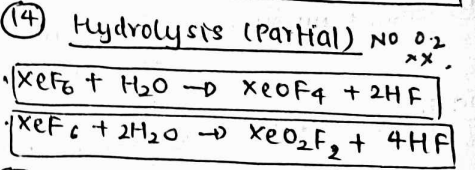 (14) Hydrolysis (Partial) NO 0.2
xx.
XeF6 + H2O → XeOF4 + 2HF
XeF6 + 2H2O → XeO2F2 + 4HF